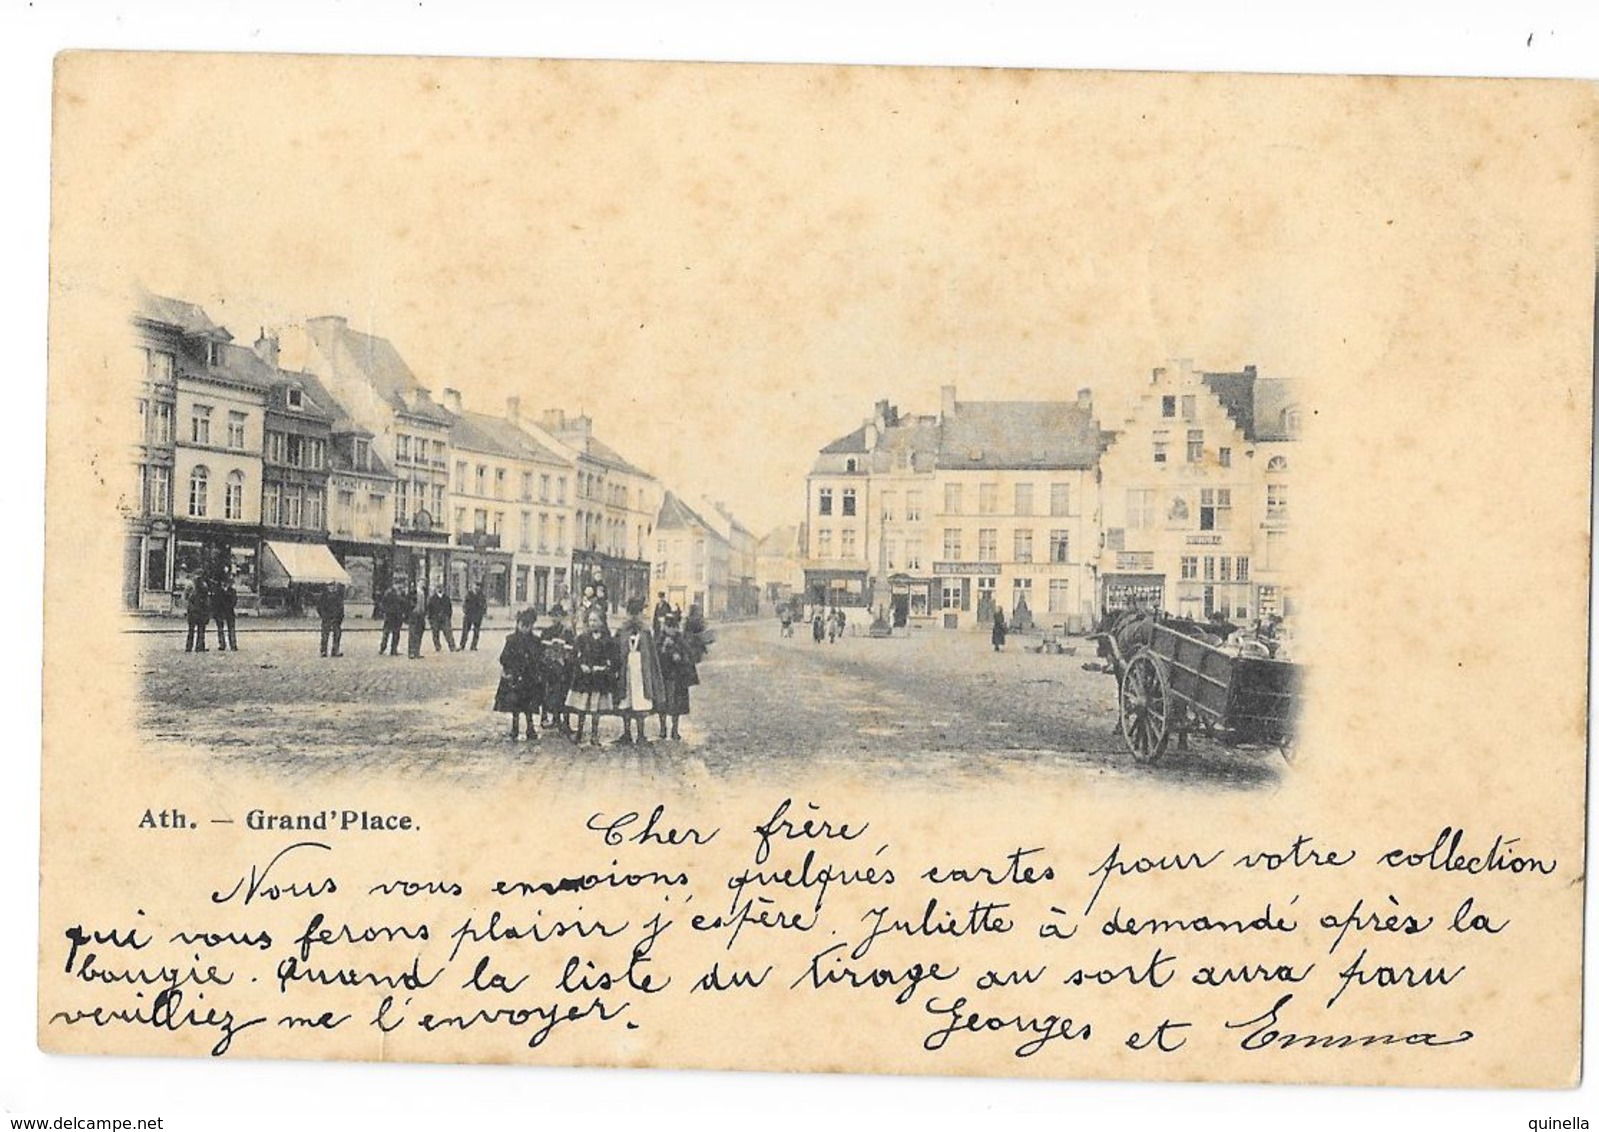 ESTAMINET
Ath. — Grand'Place.
Cher frère,
Nous vous envoions quelqués cartes pour votre collection
qui vous ferons plaisir j'espère. Juliette à demandé après la
bougie. Quand la liste du tirage au sort aura paru
veuilliez me l'envoyer.
Georges et Emma
www.delcampe.net
quinella